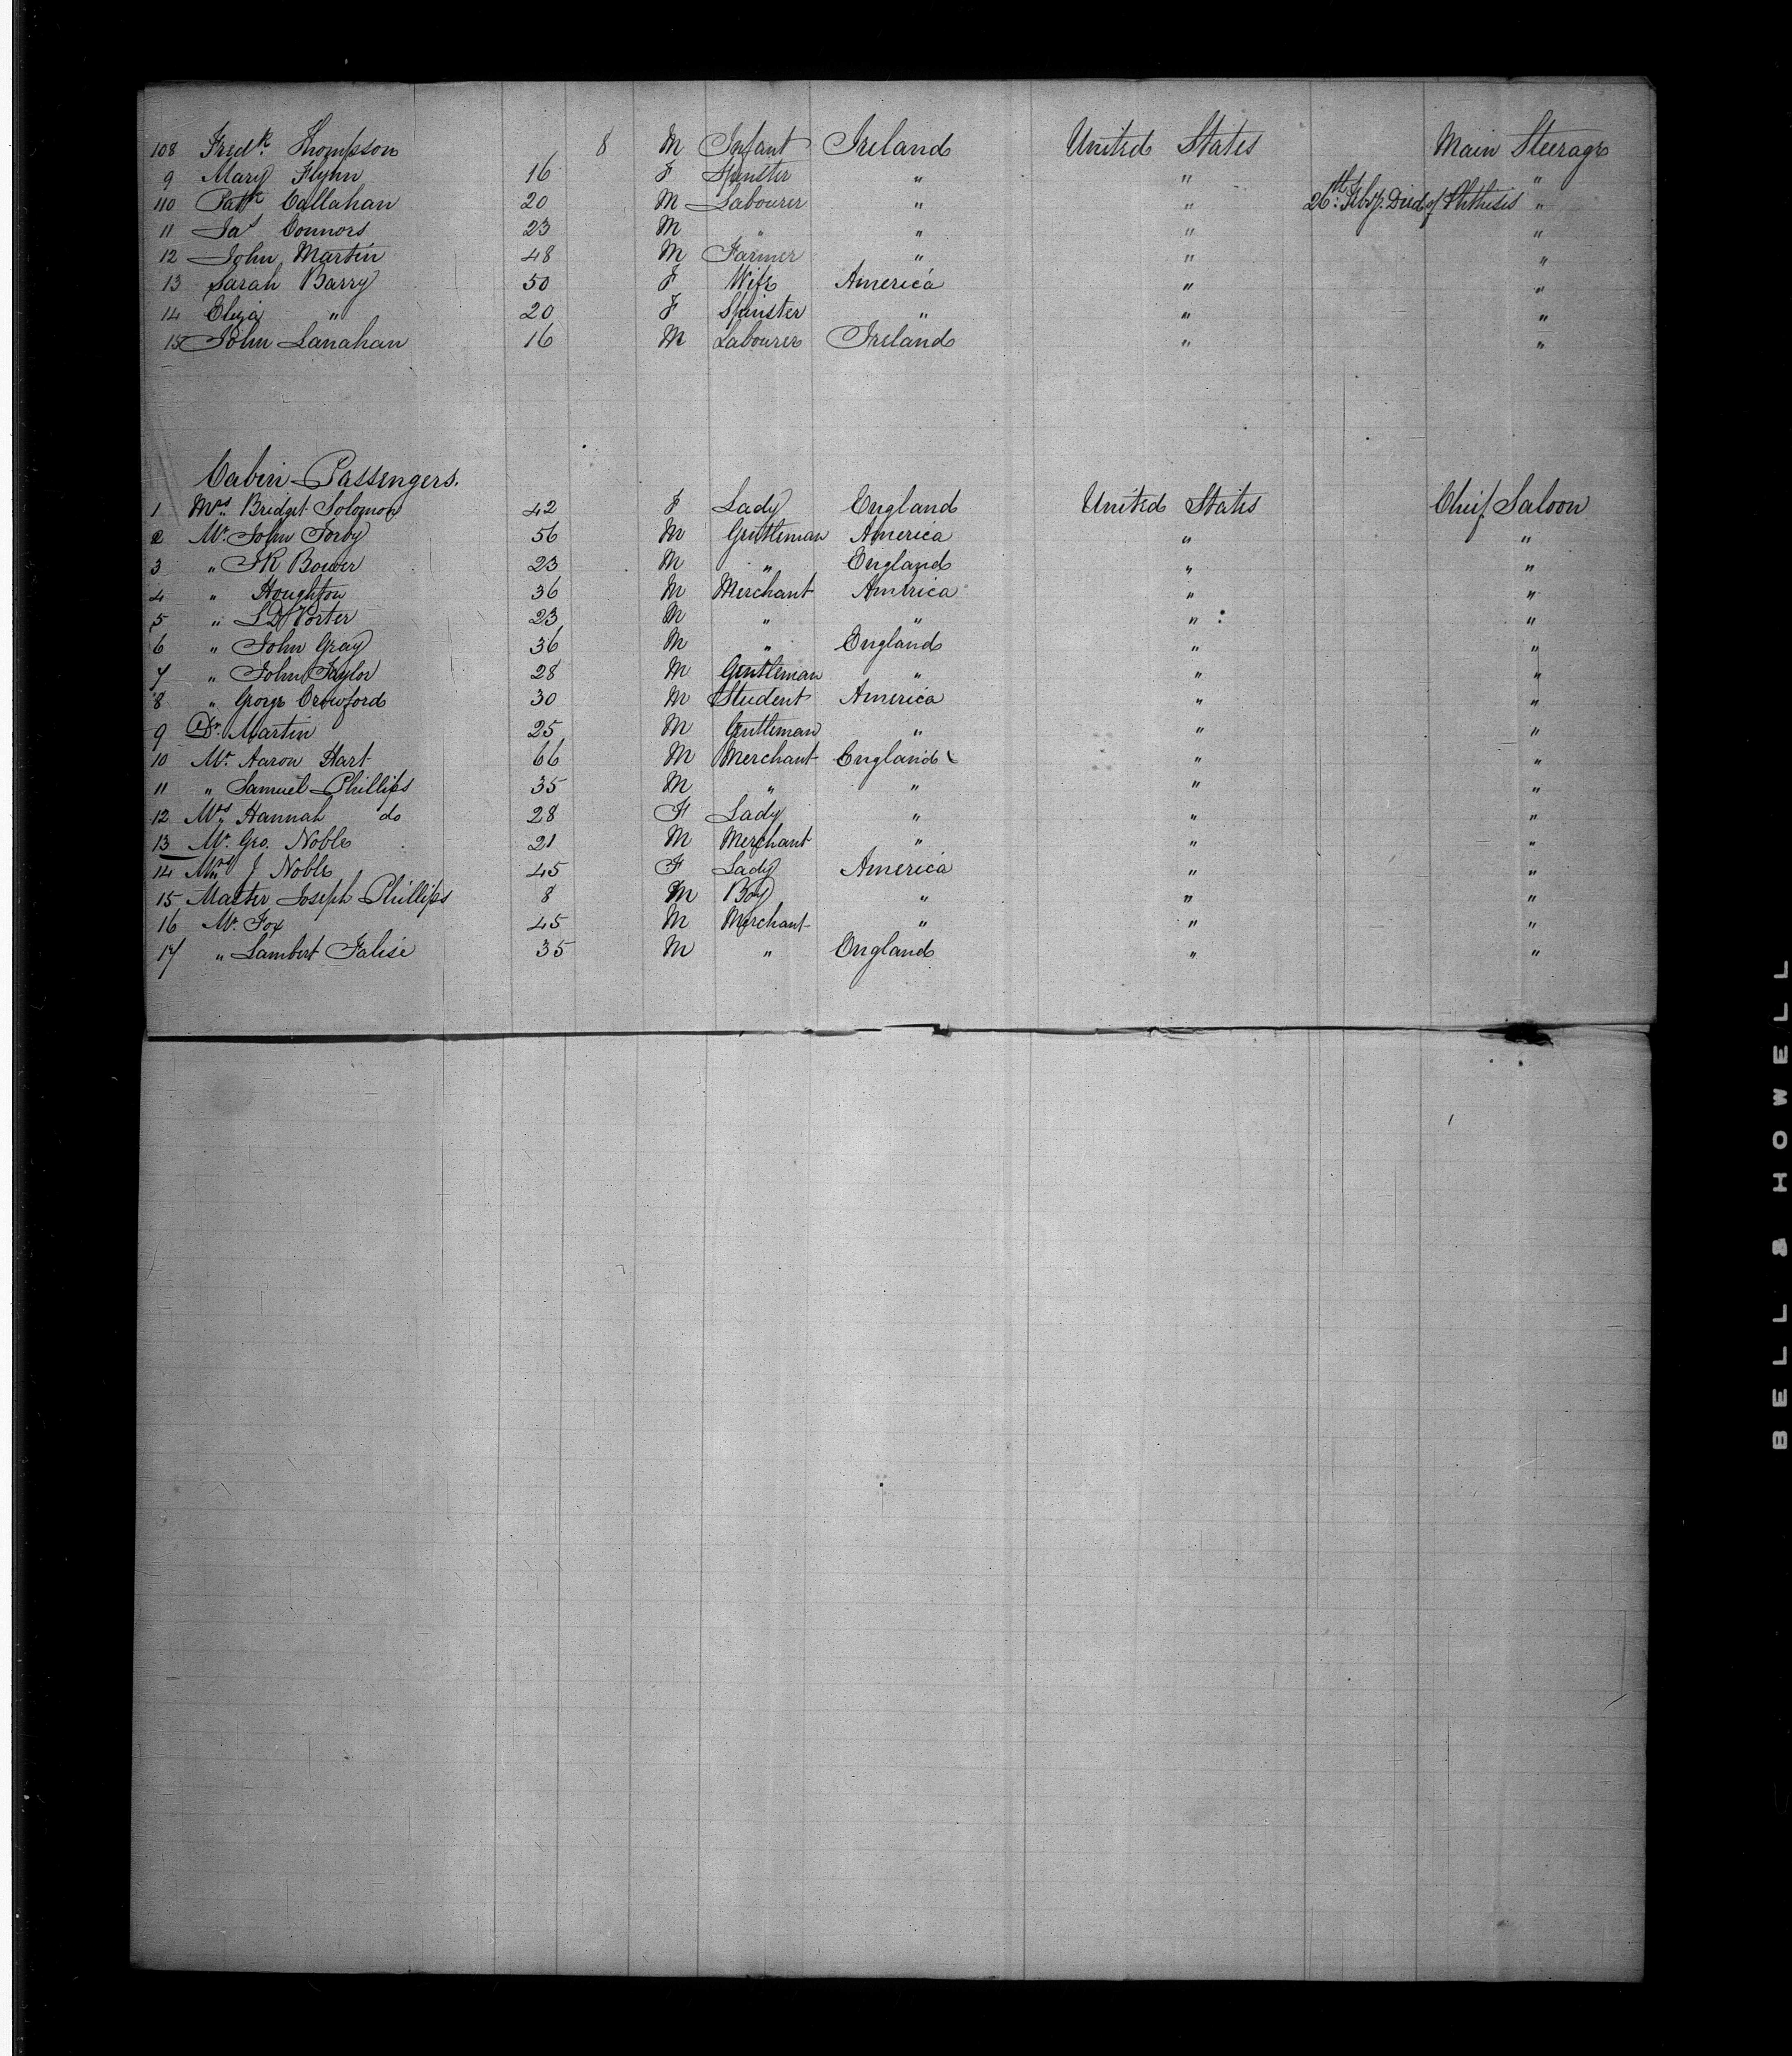 108 Fredk. Thompson 8 M Infant Ireland United States Main Steerage
9 Mary Flynn 16 F Spinster " " "
110 Patk Callahan 20 M Labourer " " 26th Feby. Died of Phthisis "
11 Jas Connors 23 M " " " "
12 John Martin 48 M Farmer " " "
13 Sarah Barry 50 F Wife America " "
14 Eliza " 20 F Spinster " " "
15 John Lanahan 16 M Labourer Ireland " "
Cabin Passengers.
1 Mrs. Bridget Solomon 42 F Lady England United States Chief Saloon
2 Mr. John 56 M Gentleman America " "
3 " Bower 23 M " England " "
4 " Houghton 36 M Merchant America " "
5 " Porter 23 M " " " "
6 " John Gray 36 M " England " "
7 " John Taylor 28 M Gentleman " " "
8 " George Crowford 30 M Student America " "
9 Dr. Martin 25 M Gentleman " " "
10 Mr. Aaron Hart 66 M Merchant England " "
11 " Samuel Phillips 35 M " " " "
12 Mrs Hannah do 28 F Lady " " "
13 Mr. Geo. Noble 21 M Merchant " " "
14 J Noble 45 F Lady America " "
15 Master Joseph Phillips 8 M Boy " " "
16 Mr. Fox 45 M Merchant " " "
17 " Lambert Falise 35 M " England " "
BELL & HOWELL